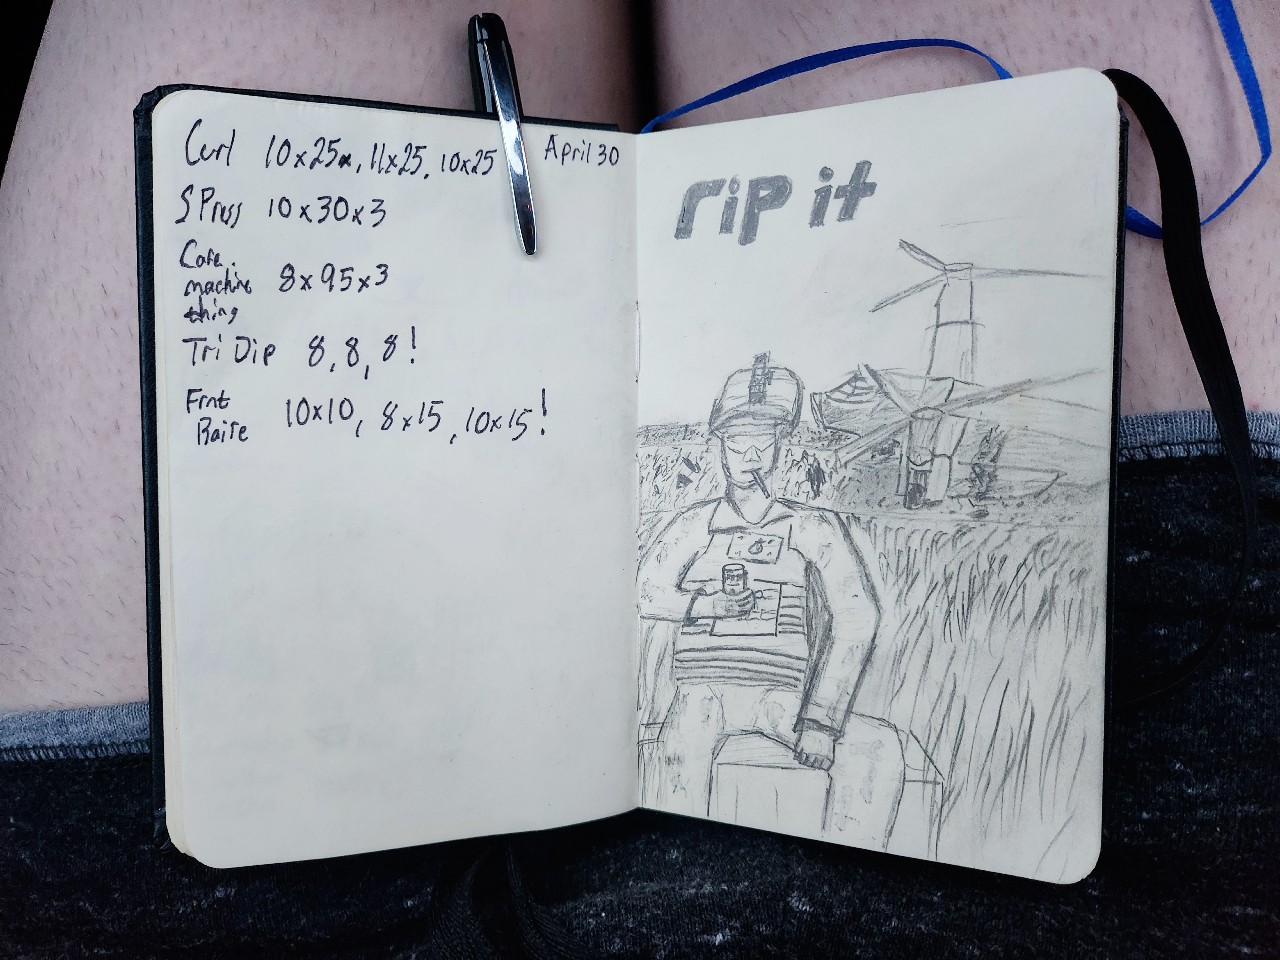 Curl 10x25, 11x25, 10x25
April 30
S Press 10x30x3
Core
machine 8x95x3
thing
Tri Dip 8, 8, 8!
Frnt
Raise 10x10, 8x15, 10x15!
rip it